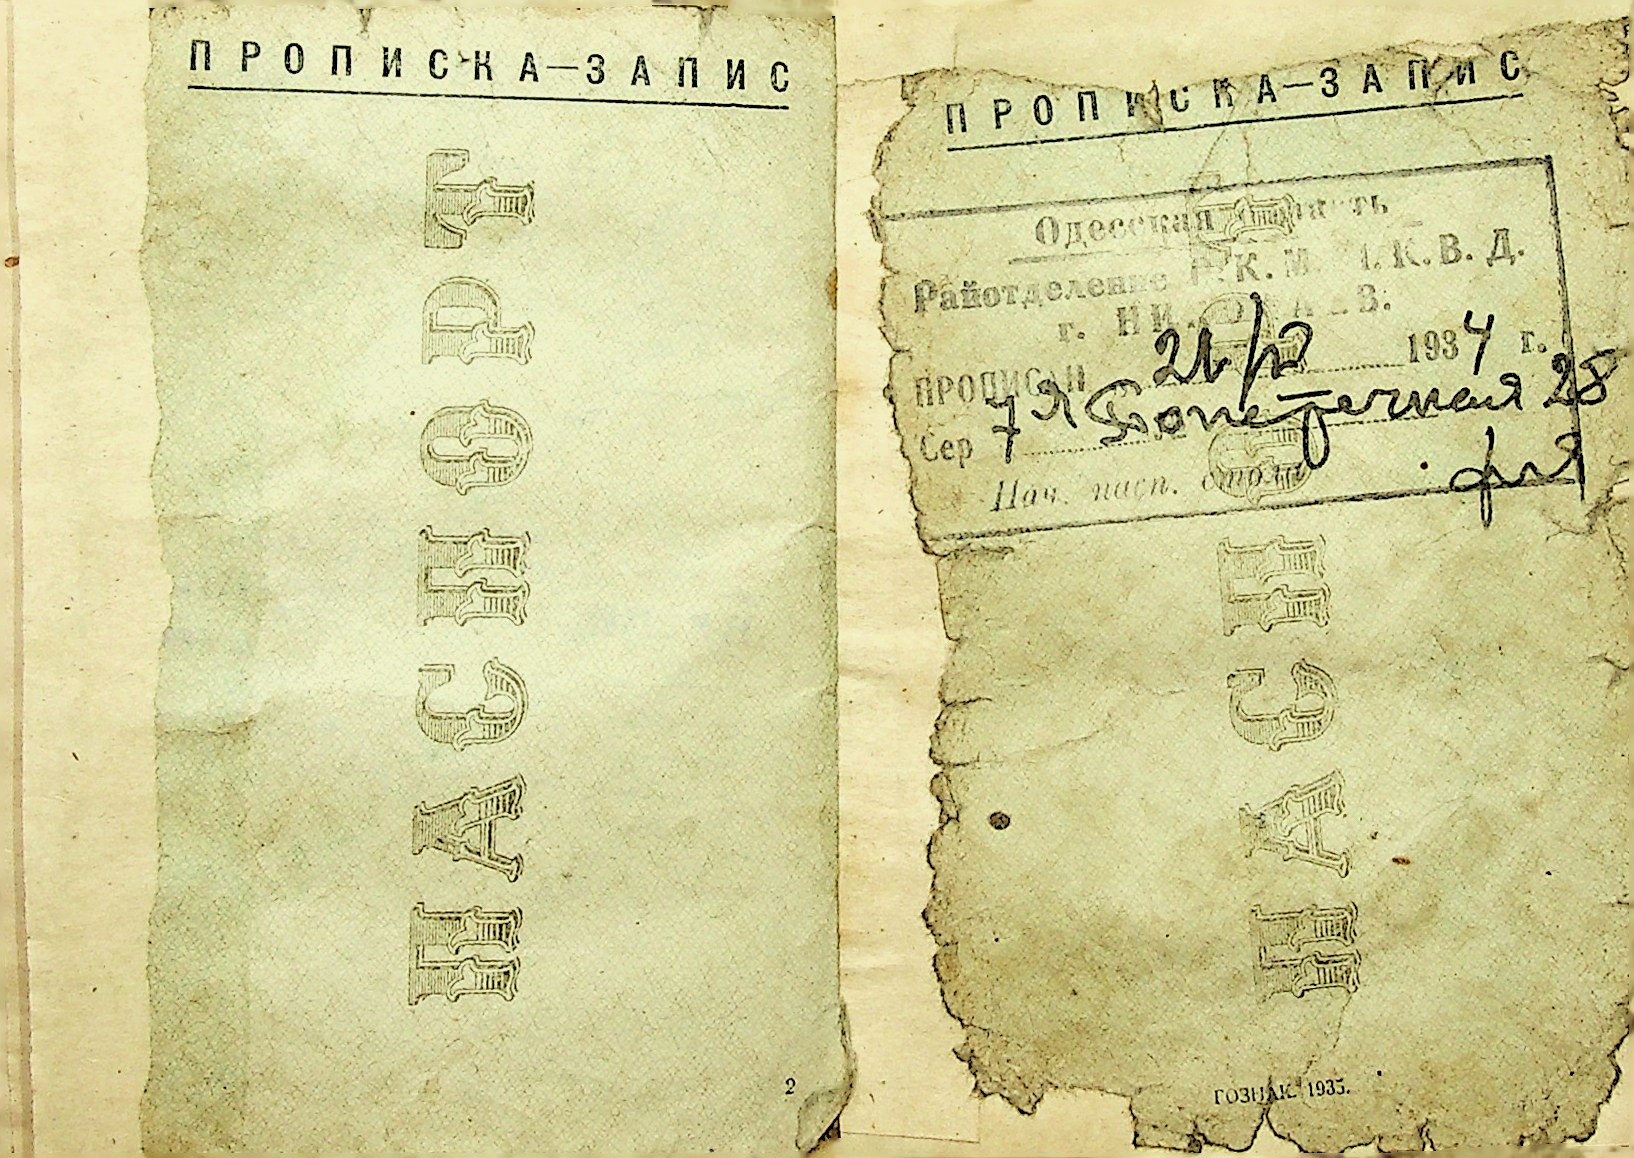 ПРОПИСКА—ЗАПИС
ПАСПОРТ
2
ПРОПИСКА—ЗАПИС
Одесская область
Райотделение Р.К.М. Н.К.В.Д.
г. НИКОЛАЕВ.
ПРОПИСАН 1934 г.
Сер 7 я Поперечная 28
Нач. пасп. стола
ПАСПОРТ
ГОЗНАК. 1935.